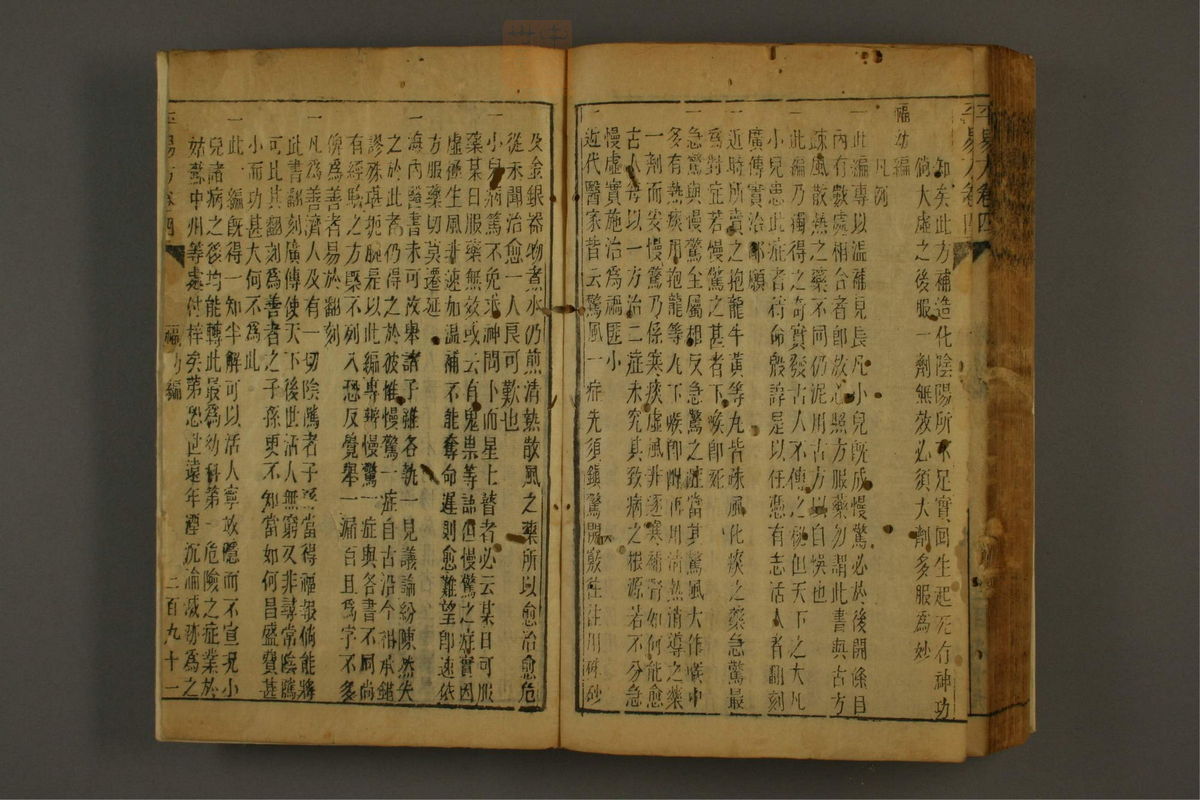 平易方卷四
知矣此方補造化陰陽所不足實囘生起死有神功
倘大虛之後服一劑無效必須大劑多服為妙
福幼編
凡例
一此編專以溫補見長凡小兒旣成慢驚必於後開條目
內有數處相合者卽放心照方服藥勿謂此書與古方
疎風散熱之藥不同仍泥用古方以自悞也
一此編乃獨得之奇實發古人不傳之秘但天下之大凡
小兒患此症者若命殷諱是以任憑有志活人者翻刻
廣傳實洽鄙願
一近時所賣之抱龍牛黃等丸皆疎風化痰之藥急驚最
為對症若慢驚之甚者下喉卽死
一急驚與慢驚全屬相反急驚之症當其驚風大作喉中
多有熱痰用抱龍等丸下喉卽醒再用清熱消導之藥
一劑而安慢驚乃係寒痰虛風非逐寒補腎如何能愈
古人每以一方治二症未究其致病之根源若不分急
慢虛實施治為禍匪小
一近代醫家皆云驚風一症先須鎮驚開竅往往用硃砂
及金銀器物煮水仍煎清熱散風之藥所以愈治愈危
從未聞治愈一人良可歎也
一小兒病篤不免求神問卜而星上瞽者必云某日可服
藥某日服藥無效或云有鬼祟等語但慢驚之症實因
虛極生風非速加溫補不能奪命遲則愈難望卽速依
方服藥切莫遷延
一海內醫書未可枚舉諸子雖各執一見議論紛陳然失
之於此者仍得之於彼惟慢驚一症自古沿今相承錯
謬殊堪扼腕是以此編專辨慢驚一症與各書不同尚
有經騐之方槩不列入恐反覺舉一漏百且為字不多
俾為善者易於翻刻
一凡為善濟人及有一切陰隲者子孫當得福報倘能將
此書翻刻廣傳使天下後世活人無窮又非尋常陰隲
可比其翻刻為善者之子孫更不知當如何昌盛費甚
小而功甚大何不為此
一此一編旣得一知半解可以活人寧敢隱而不宣况小
兒諸病之後均能轉此最為幼科第一危險之症業於
姑蘇中州等處付梓矣第恐世遠年湮沉淪滅跡為之
平易方卷四
福幼編
二百九十一